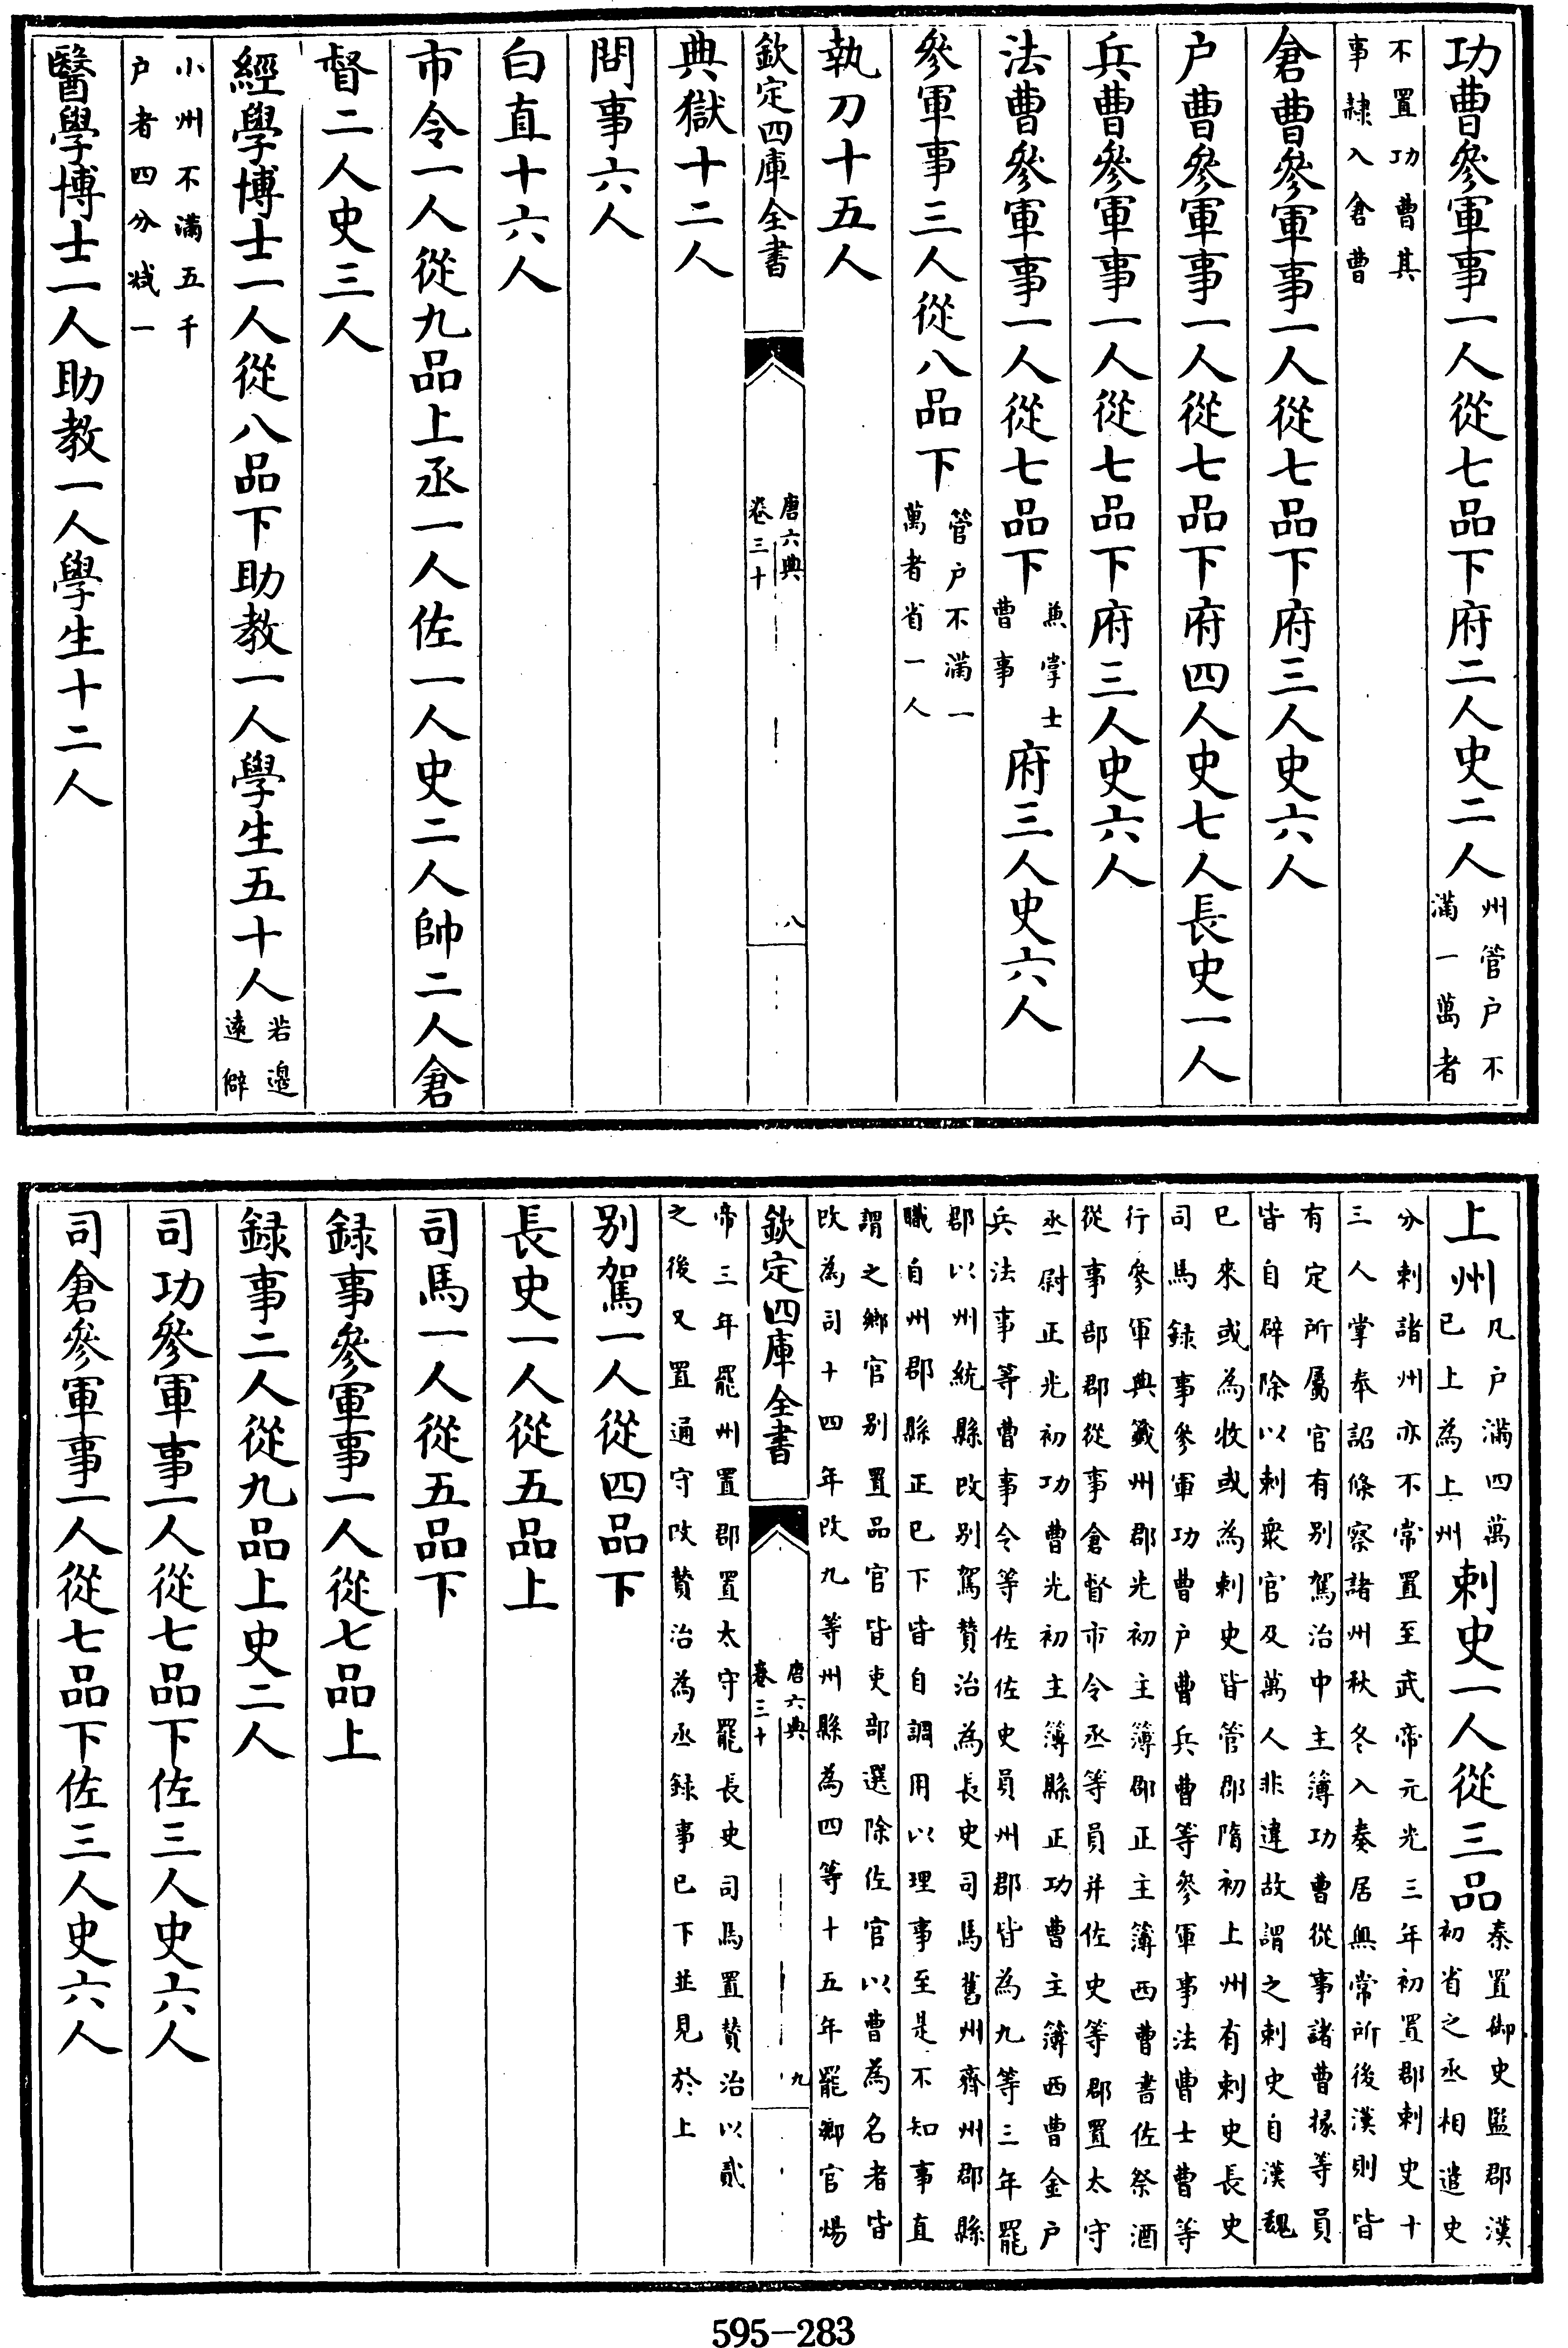 功曹參軍事一人從七品下府二人史二人州管户不滿一萬者
不置功曹其事隸入倉曹
倉曹參軍事一人從七品下府三人史六人
户曹參軍事一人從七品下府四人史七人長史一人
兵曹參軍事一人從七品下府三人史六人
法曹參軍事一人從七品下兼掌士曹事府三人史六人
參軍事三人從八品下管户不滿一萬者省一人
執刀十五人
欽定四庫全書 唐六典卷三十 八
典獄十二人
問事六人
白直十六人
市令一人從九品上丞一人佐一人史二人帥二人倉
督二人史三人
經學博士一人從八品下助教一人學生五十人若邊遠僻
小州不滿五千户者四分減一
醫學博士一人助教一人學生十二人
上州凡户滿四萬已上為上州刺史一人從三品秦置御史監郡漢初省之丞相遣史
分刺諸州亦不常置至武帝元光三年初置郡刺史十三人掌奉詔條察諸州秋冬入奏居無常所後漢則皆
有定所屬官有别駕治中主簿功曹從事諸曹掾等員皆自辟除以刺衆官及萬人非違故謂之刺史自漢魏
已來或為牧或為刺史皆管郡隋初上州有刺史長史司馬録事參軍功曹户曹兵曹等參軍事法曹士曹等
行參軍典籤州郡光初主簿郡正主簿西曹書佐祭酒從事部郡從事倉督市令丞等員并佐史等郡置太守
丞尉正光初功曹光初主簿縣正功曹主簿西曹金户兵法事等曹事令等佐佐史員州郡皆為九等三年罷
郡以州統縣改别駕贊治為長史司馬舊州齊州郡縣職自州郡縣正已下皆自調用以理事至是不知事直
謂之鄉官别置品官皆吏部選除佐官以曹為名者皆改為司十四年改九等州縣為四等十五年罷鄉官煬
欽定四庫全書 唐六典卷三十 九
帝三年罷州置郡置太守罷長史司馬置贊治以貳之後又置通守改贊治為丞録事已下並見於上
别駕一人從四品下
長史一人從五品上
司馬一人從五品下
録事參軍事一人從七品上
録事二人從九品上史二人
司功參軍事一人從七品下佐三人史六人
司倉參軍事一人從七品下佐三人史六人
595-283